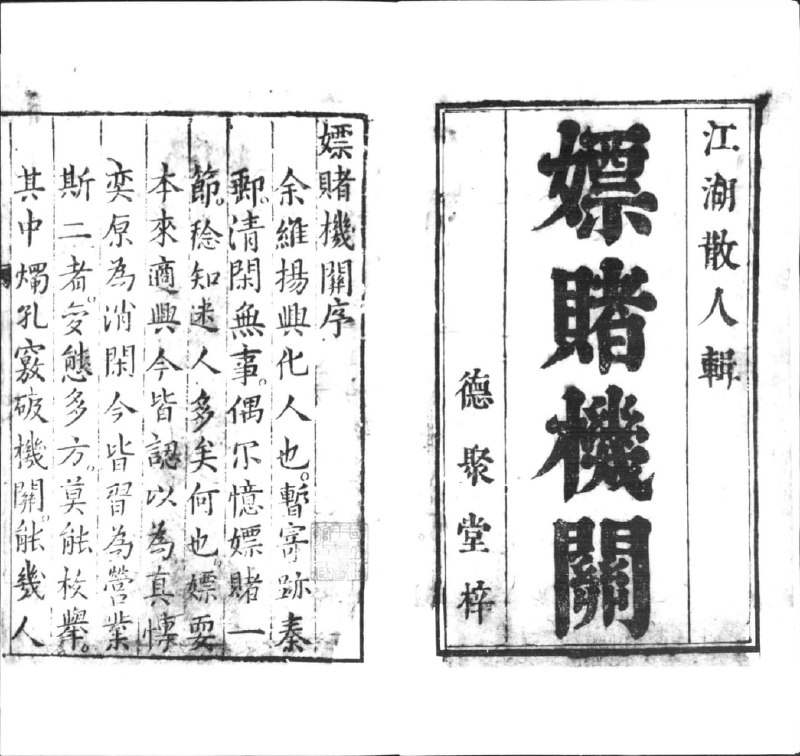 江湖散人輯
嫖賭機關
德聚堂梓
嫖賭機關序
余維揚興化人也。暫寄跡秦
郵。清閑無事。偶尔憶嫖賭一
節。稔知迷人多矣何也。嫖耍
本來適興今皆認以為真情
奕原為消閑今皆習為營業
斯二者。变態多方。莫能枚舉。
其中燭孔竅破機關。能幾人